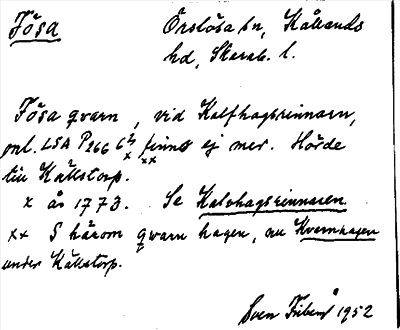 Fåsa Örslösa sn, Kållands
hd, Skarab. l.
Fåsa qvarn, vid Kalfhagsrinnarn,
enl. LSA P266 6² x finns xx ej mer. Hörde
till Källstorp.
x år 1773. Se Kalvhagsrinnaren
xx S härom qvarn hagen, nu Kvarnhagen
under Källstorp.
Sven 1952